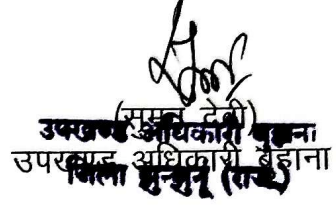 (सुमन देवी)
उपखण्ड अधिकारी बुहाना
उपखण्ड अधिकारी बुहाना
जिला झुन्झुनू (राज०)